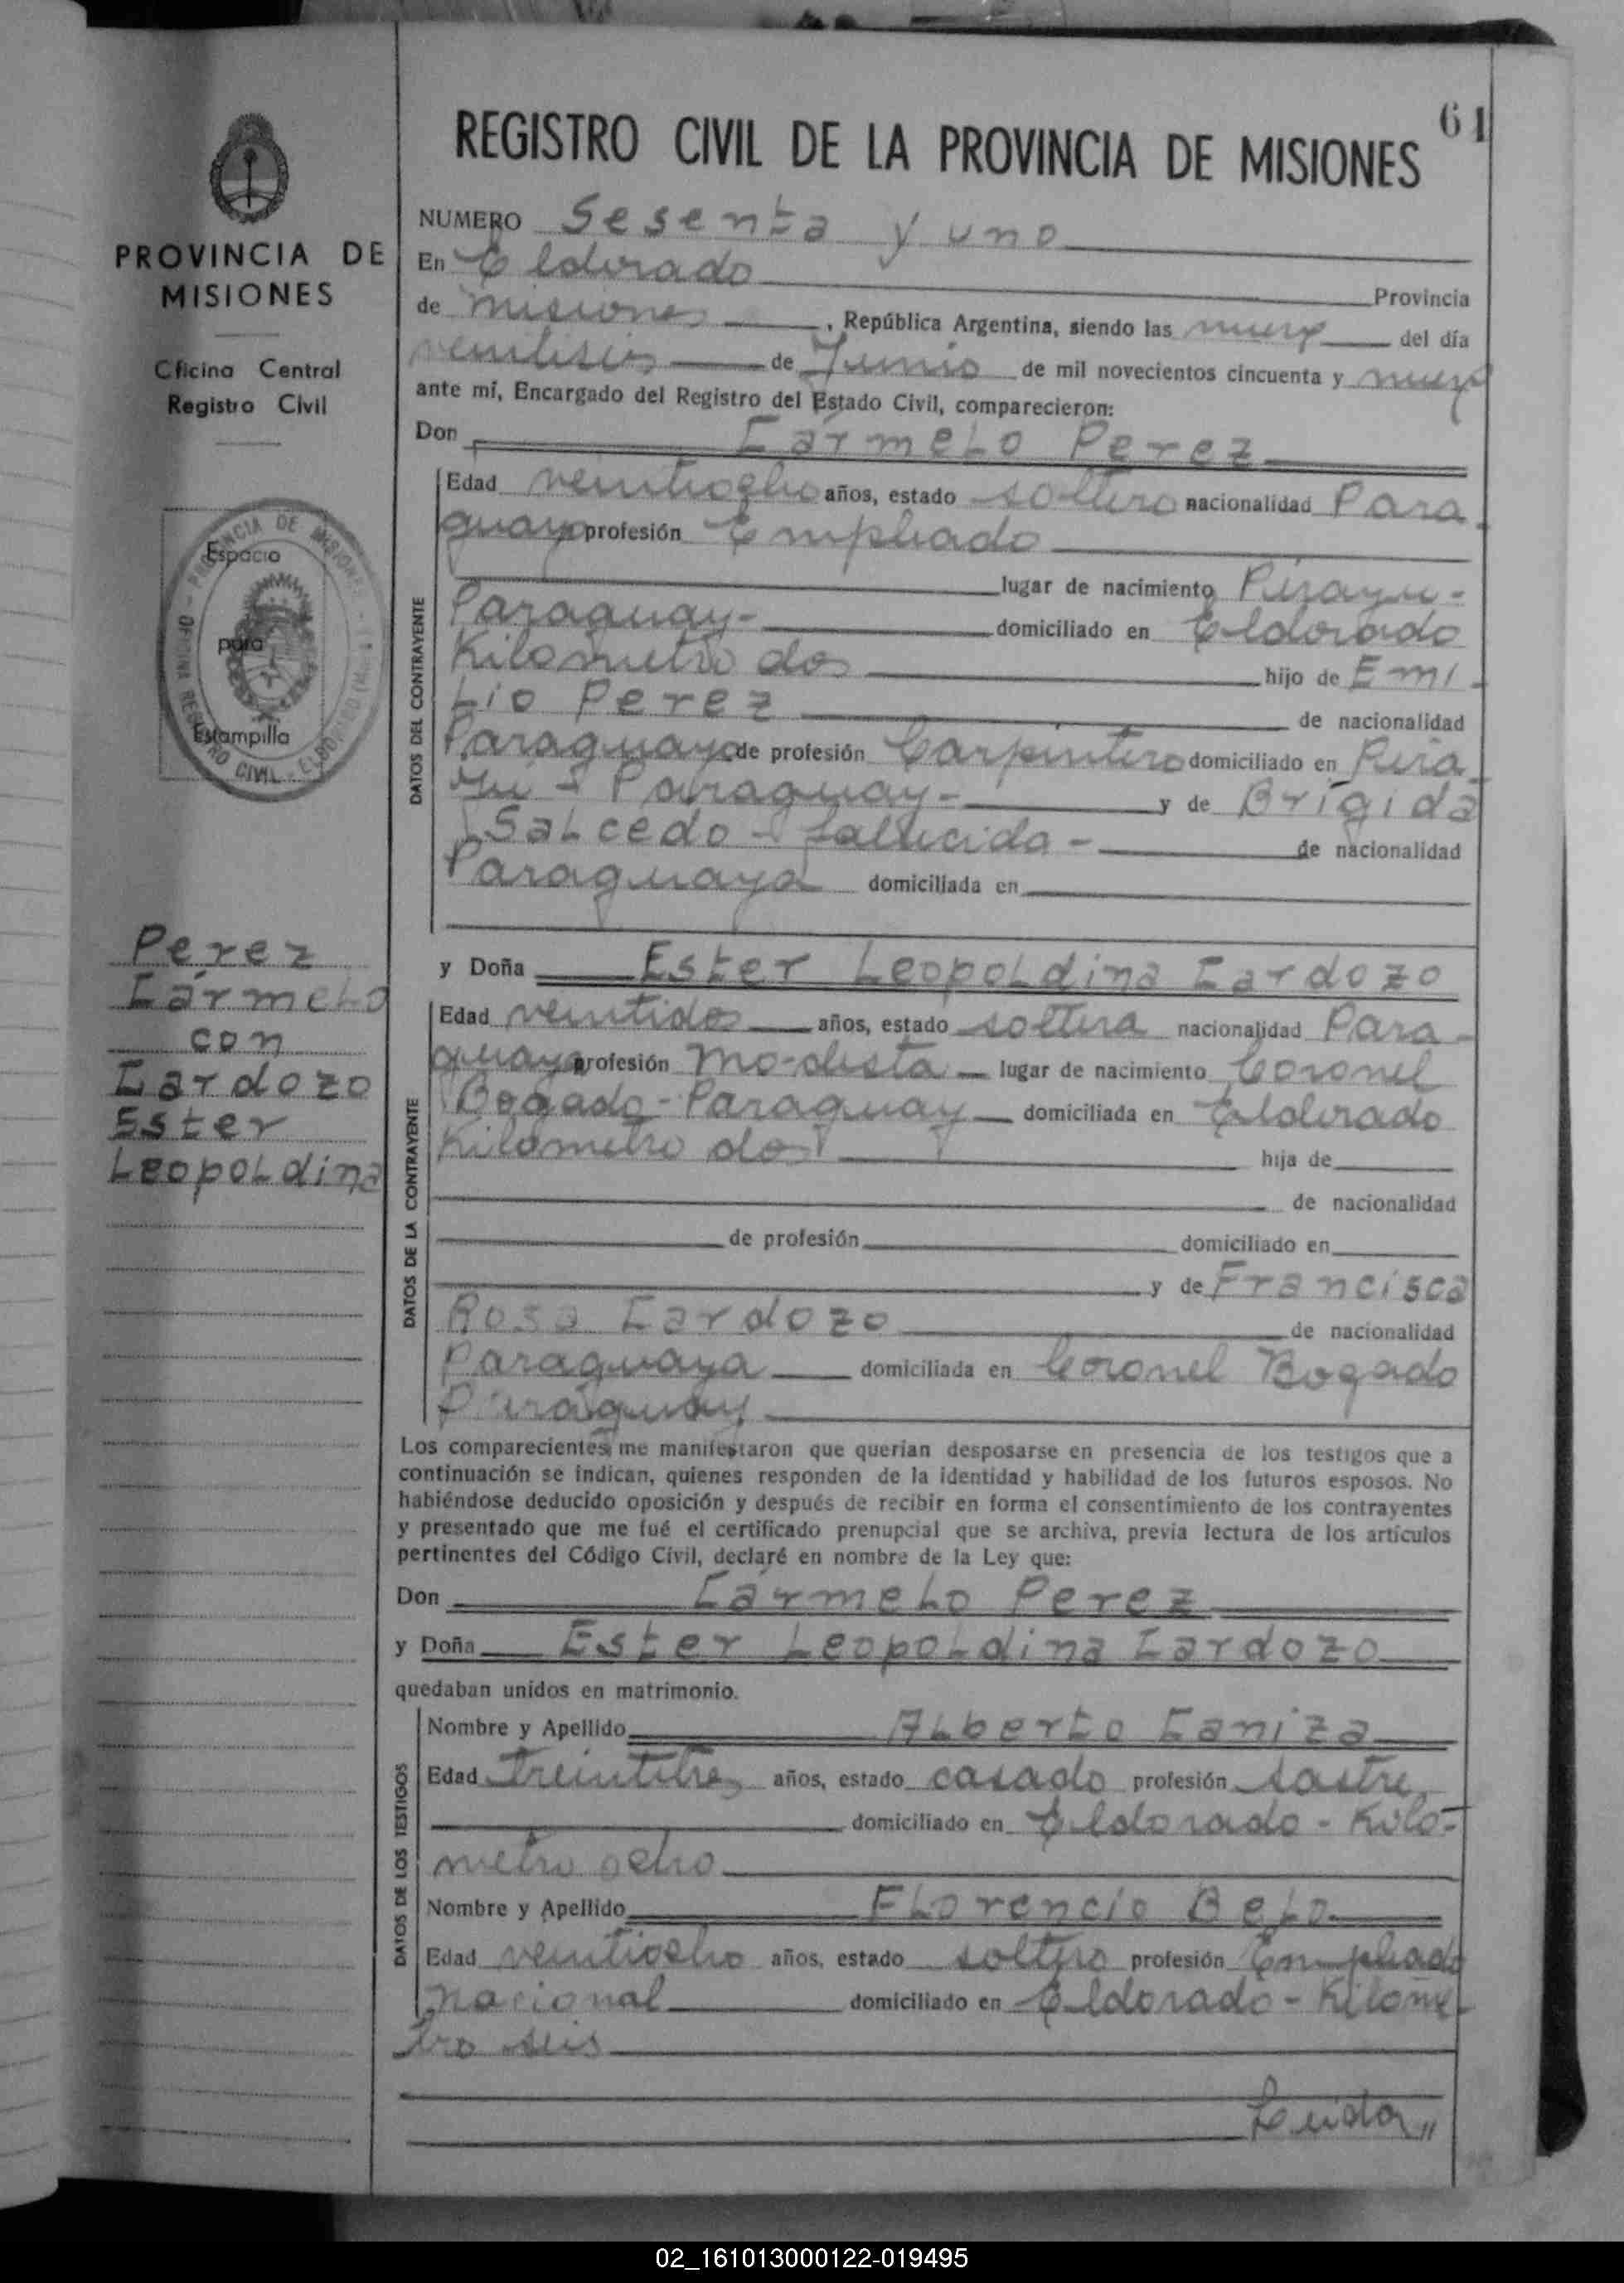 61
REGISTRO CIVIL DE LA PROVINCIA DE MISIONES
PROVINCIA DE
MISIONES
Oficina Central
Registro Civil
PROVINCIA DE MISIONES
Espacio
para
Estampilla
Perez
Cármelo
con
Cardozo
Ester
Leopoldina
NUMERO Sesenta y uno
En Eldorado Provincia
de Misiones, República Argentina, siendo las nueve del día
veintiseis de Junio de mil novecientos cincuenta y nueve
ante mí, Encargado del Registro del Estado Civil, comparecieron:
Don Cármelo Perez
DATOS DEL CONTRAYENTE
Edad veintiocho años, estado soltero nacionalidad Para-
guaya profesión Empleado
lugar de nacimiento Pirayu-
Paraguay- domiciliado en Eldorado
Kilometro dos hijo de Emi-
lio Perez de nacionalidad
Paraguaya de profesión Carpintero domiciliado en Pira-
yu - Paraguay- y de Brígida
Salcedo - fallecida - de nacionalidad
Paraguaya domiciliada en
y Doña Ester Leopoldina Cardozo
DATOS DE LA CONTRAYENTE
Edad veintidos años, estado soltera nacionalidad Para-
guaya profesión Modista lugar de nacimiento Coronel
Bogado - Paraguay domiciliada en Eldorado
Kilometro dos hija de
de nacionalidad
de profesión domiciliado en
y de Francisca
Rosa Cardozo de nacionalidad
Paraguaya domiciliada en Coronel Bogado
Paraguay
Los comparecientes me manifestaron que querían desposarse en presencia de los testigos que a
continuación se indican, quienes responden de la identidad y habilidad de los futuros esposos. No
habiéndose deducido oposición y después de recibir en forma el consentimiento de los contrayentes
y presentado que me fué el certificado prenupcial que se archiva, previa lectura de los artículos
pertinentes del Código Civil, declaré en nombre de la Ley que:
Don Cármelo Perez
y Doña Ester Leopoldina Cardozo
quedaban unidos en matrimonio.
DATOS DE LOS TESTIGOS
Nombre y Apellido Alberto Caniza
Edad treintitres años, estado casado profesión sastre
domiciliado en Eldorado - Kiló-
metro ocho
Nombre y Apellido Florencio Belo
Edad veintiocho años, estado soltero profesión Empleado
nacional domiciliado en Eldorado - Kilóme-
tro seis
Leida,,
02_161013000122-019495